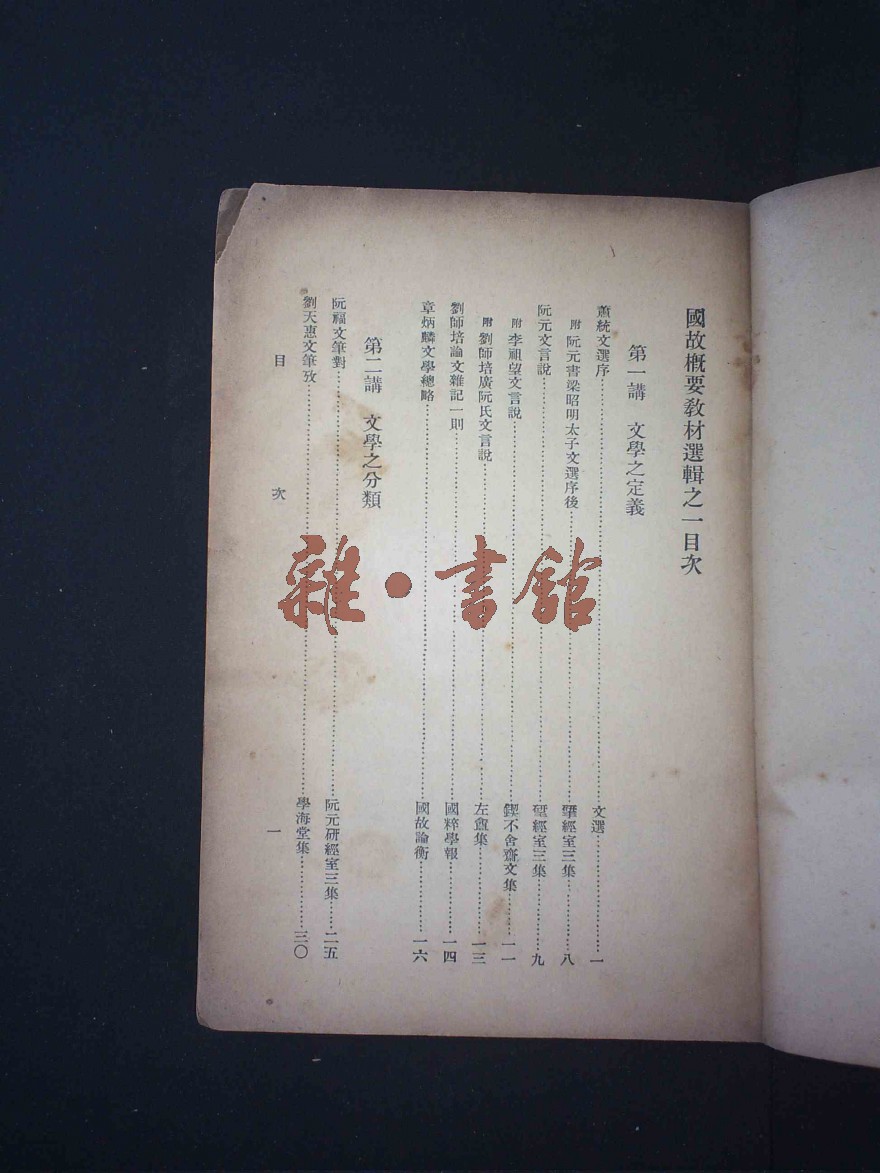 國故概要教材選輯之一目次
第一講　文學之定義
蕭統文選序……文選……一
附 阮元書梁昭明太子文選序後……揅經室三集……八
阮元文言說……揅經室三集……九
附 李祖望文言說……鍥不舍齋文集……一一
附 劉師培廣阮氏文言說……左盦集……一三
劉師培論文雜記一則……國粹學報……一四
章炳麟文學總略……國故論衡……一六
第二講　文學之分類
阮福文筆對……阮元研經室三集……二五
劉天惠文筆攷……學海堂集……三〇
目　次　一
雜·書館